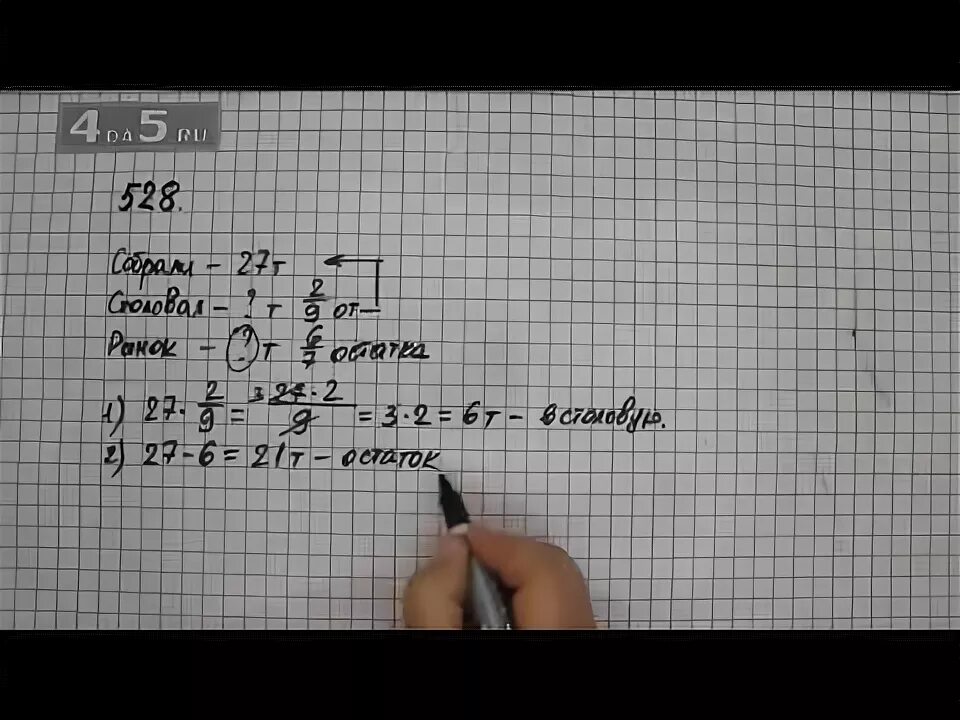 4 DA 5 RU
528.
Собрали – 27т
Столовая – ? т 2/9 от
Рынок – ? т 6/7 остатка
1) 27 · 2/9 = 3 27 · 2 / 9 = 3 · 2 = 6 т – в столовую.
2) 27 – 6 = 21 т – остаток